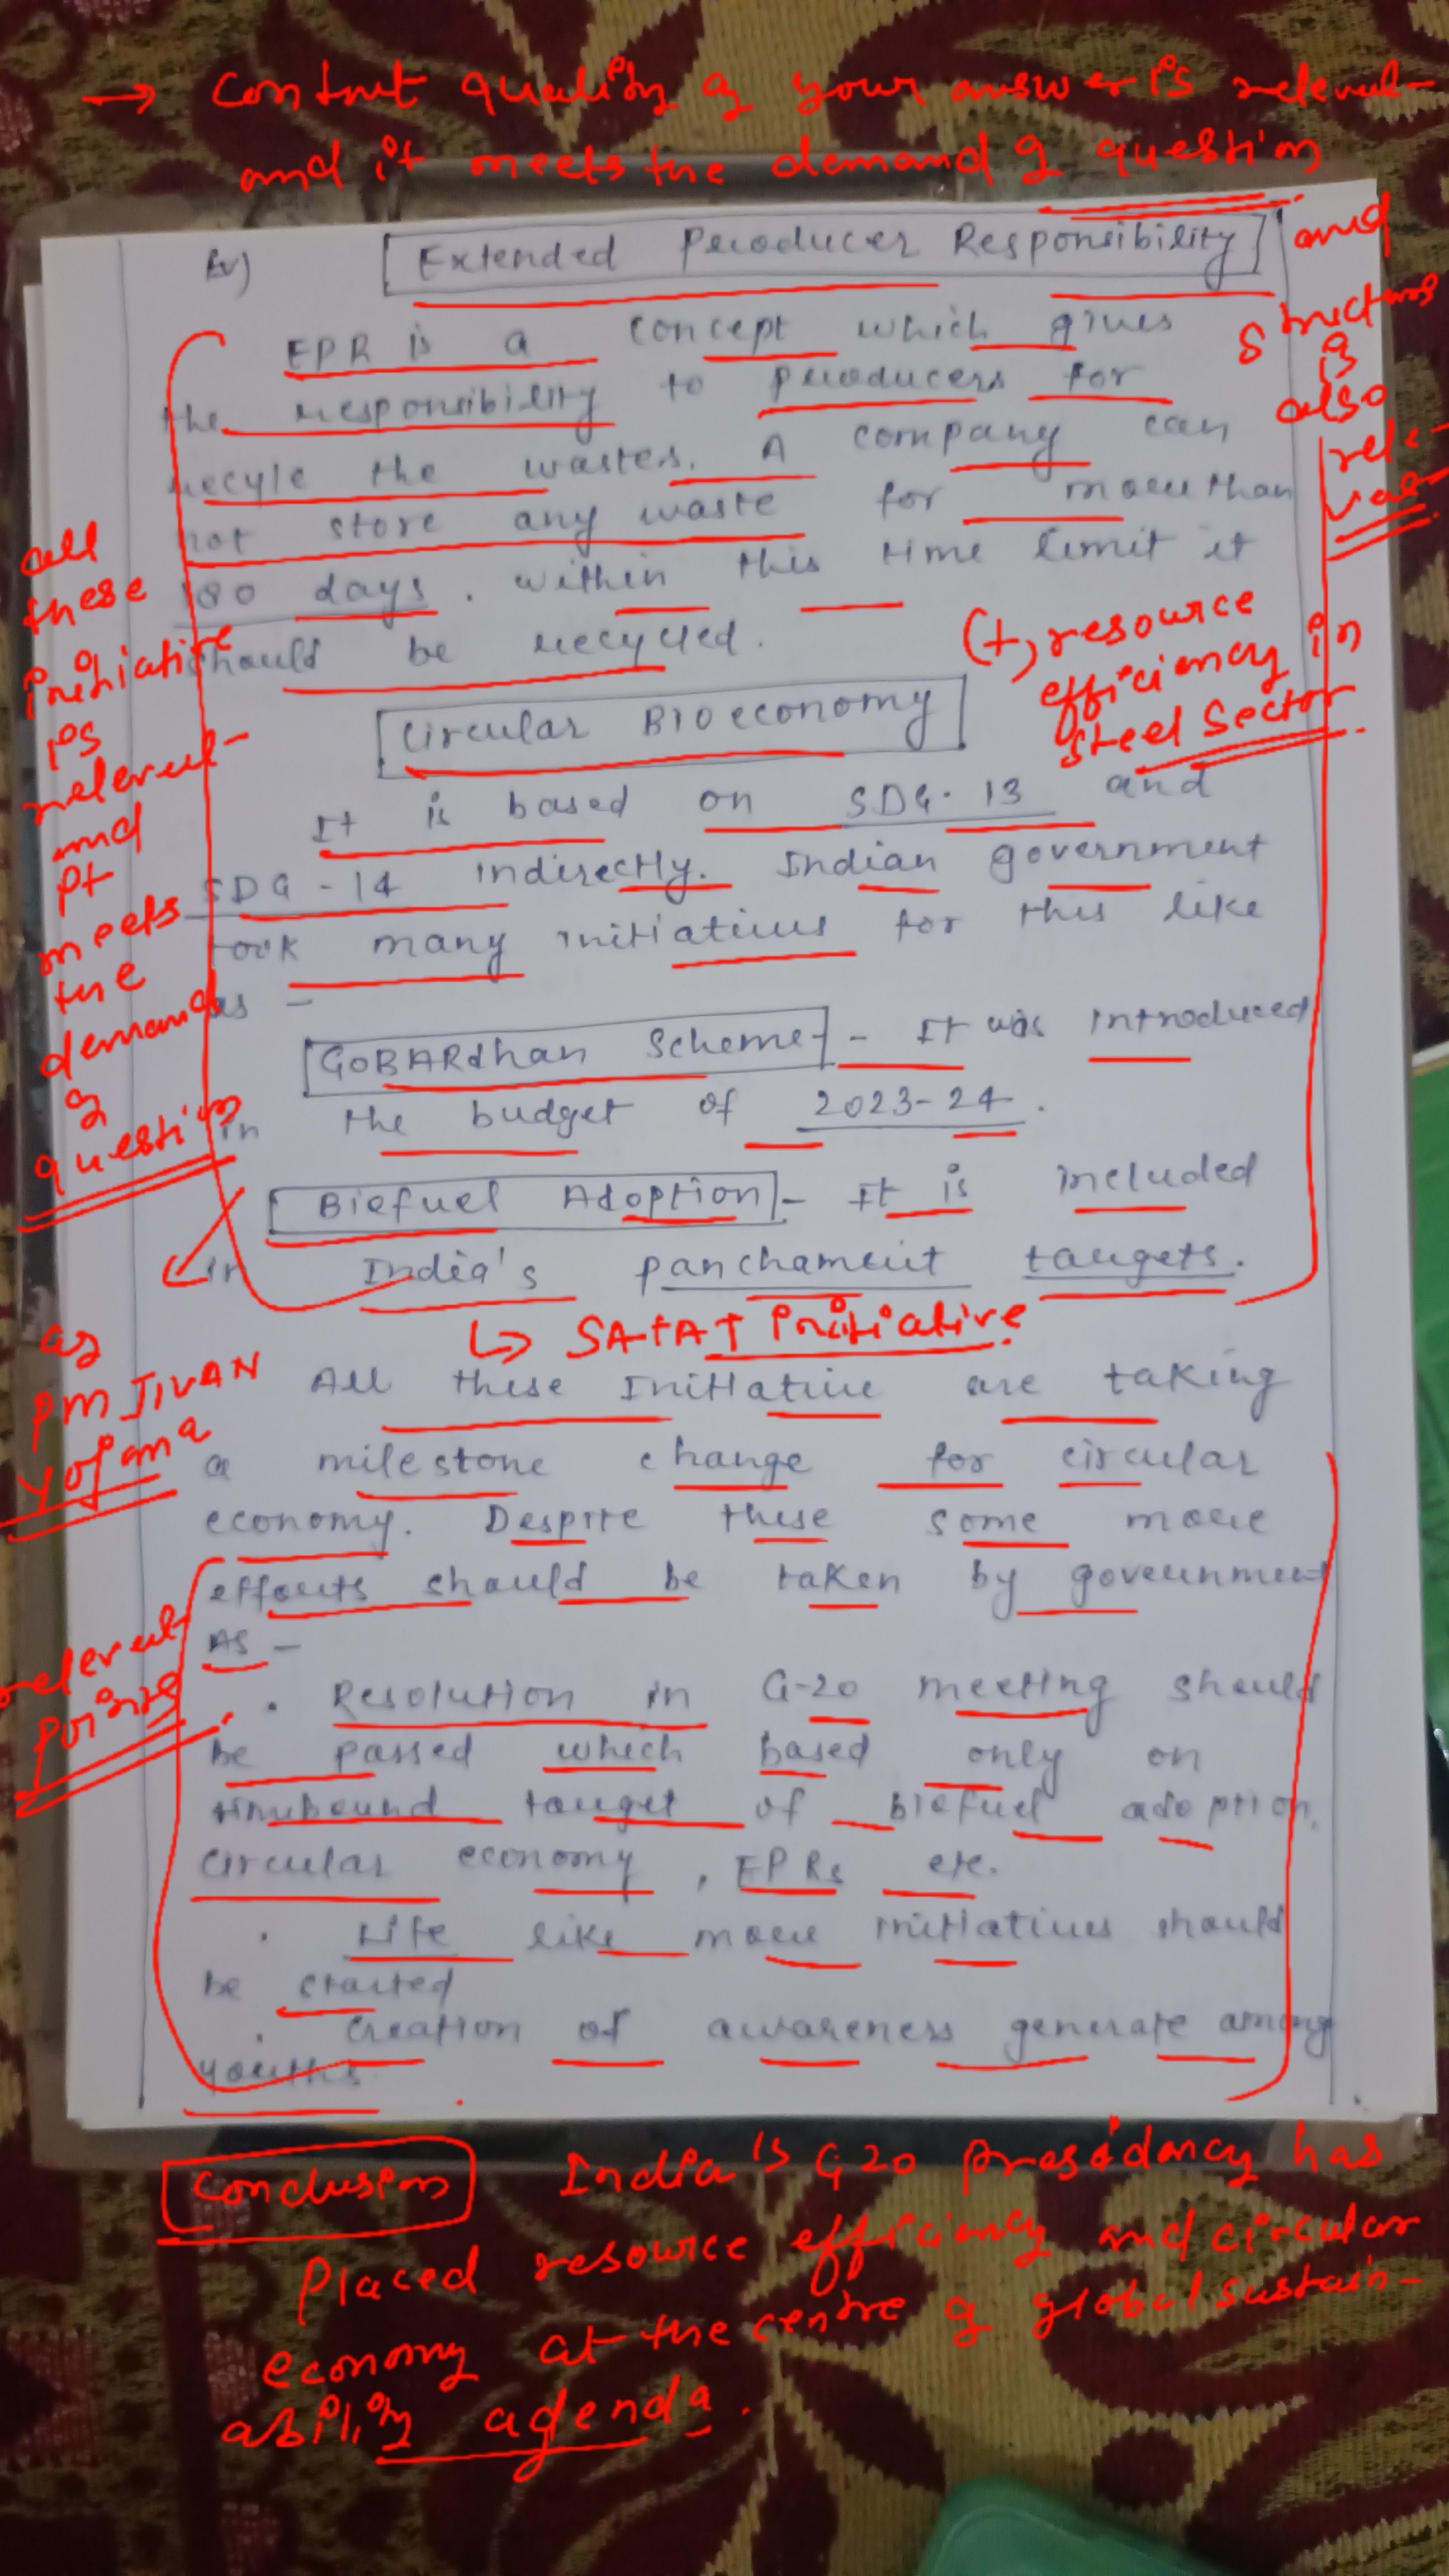 → Content quality of your answer is relevant
and it meets the demand of question
and
structure
is
also
rele-
vant
iv) Extended Producer Responsibility
EPR is a concept which gives
the responsibility to producers for
recyle the wastes. A company can
not store any waste for more than
180 days. within this time limit it
should be recycled.
all
these
initiative
is
relevant
and
it
meets
the
demand
of
question
(+) resource
efficiency in
steel sector
Circular Bioeconomy
It is based on SDG-13 and
SDG-14 indirectly. Indian government
took many initiatives for this like
as -
GOBARdhan Scheme - It was introduced
in the budget of 2023-24.
Biefuel Adoption - It is included
in India's panchamrit targets.
↳ SATAT initiative
as
PM JIVAN
Yojana
All these Initiative are taking
a milestone change for circular
economy. Despite these some more
efforts should be taken by government
As -
relevant
points
• Resolution in G-20 meeting should
be passed which based only on
timebound target of biefuel adoption,
circular economy, EPRs etc.
• Life like more initiatives should
be started
• Creation of awareness generate among
youths.
Conclusion India's G20 presidancy has
Placed resource efficiency and circular
economy at the centre of global sustain-
ability agenda.